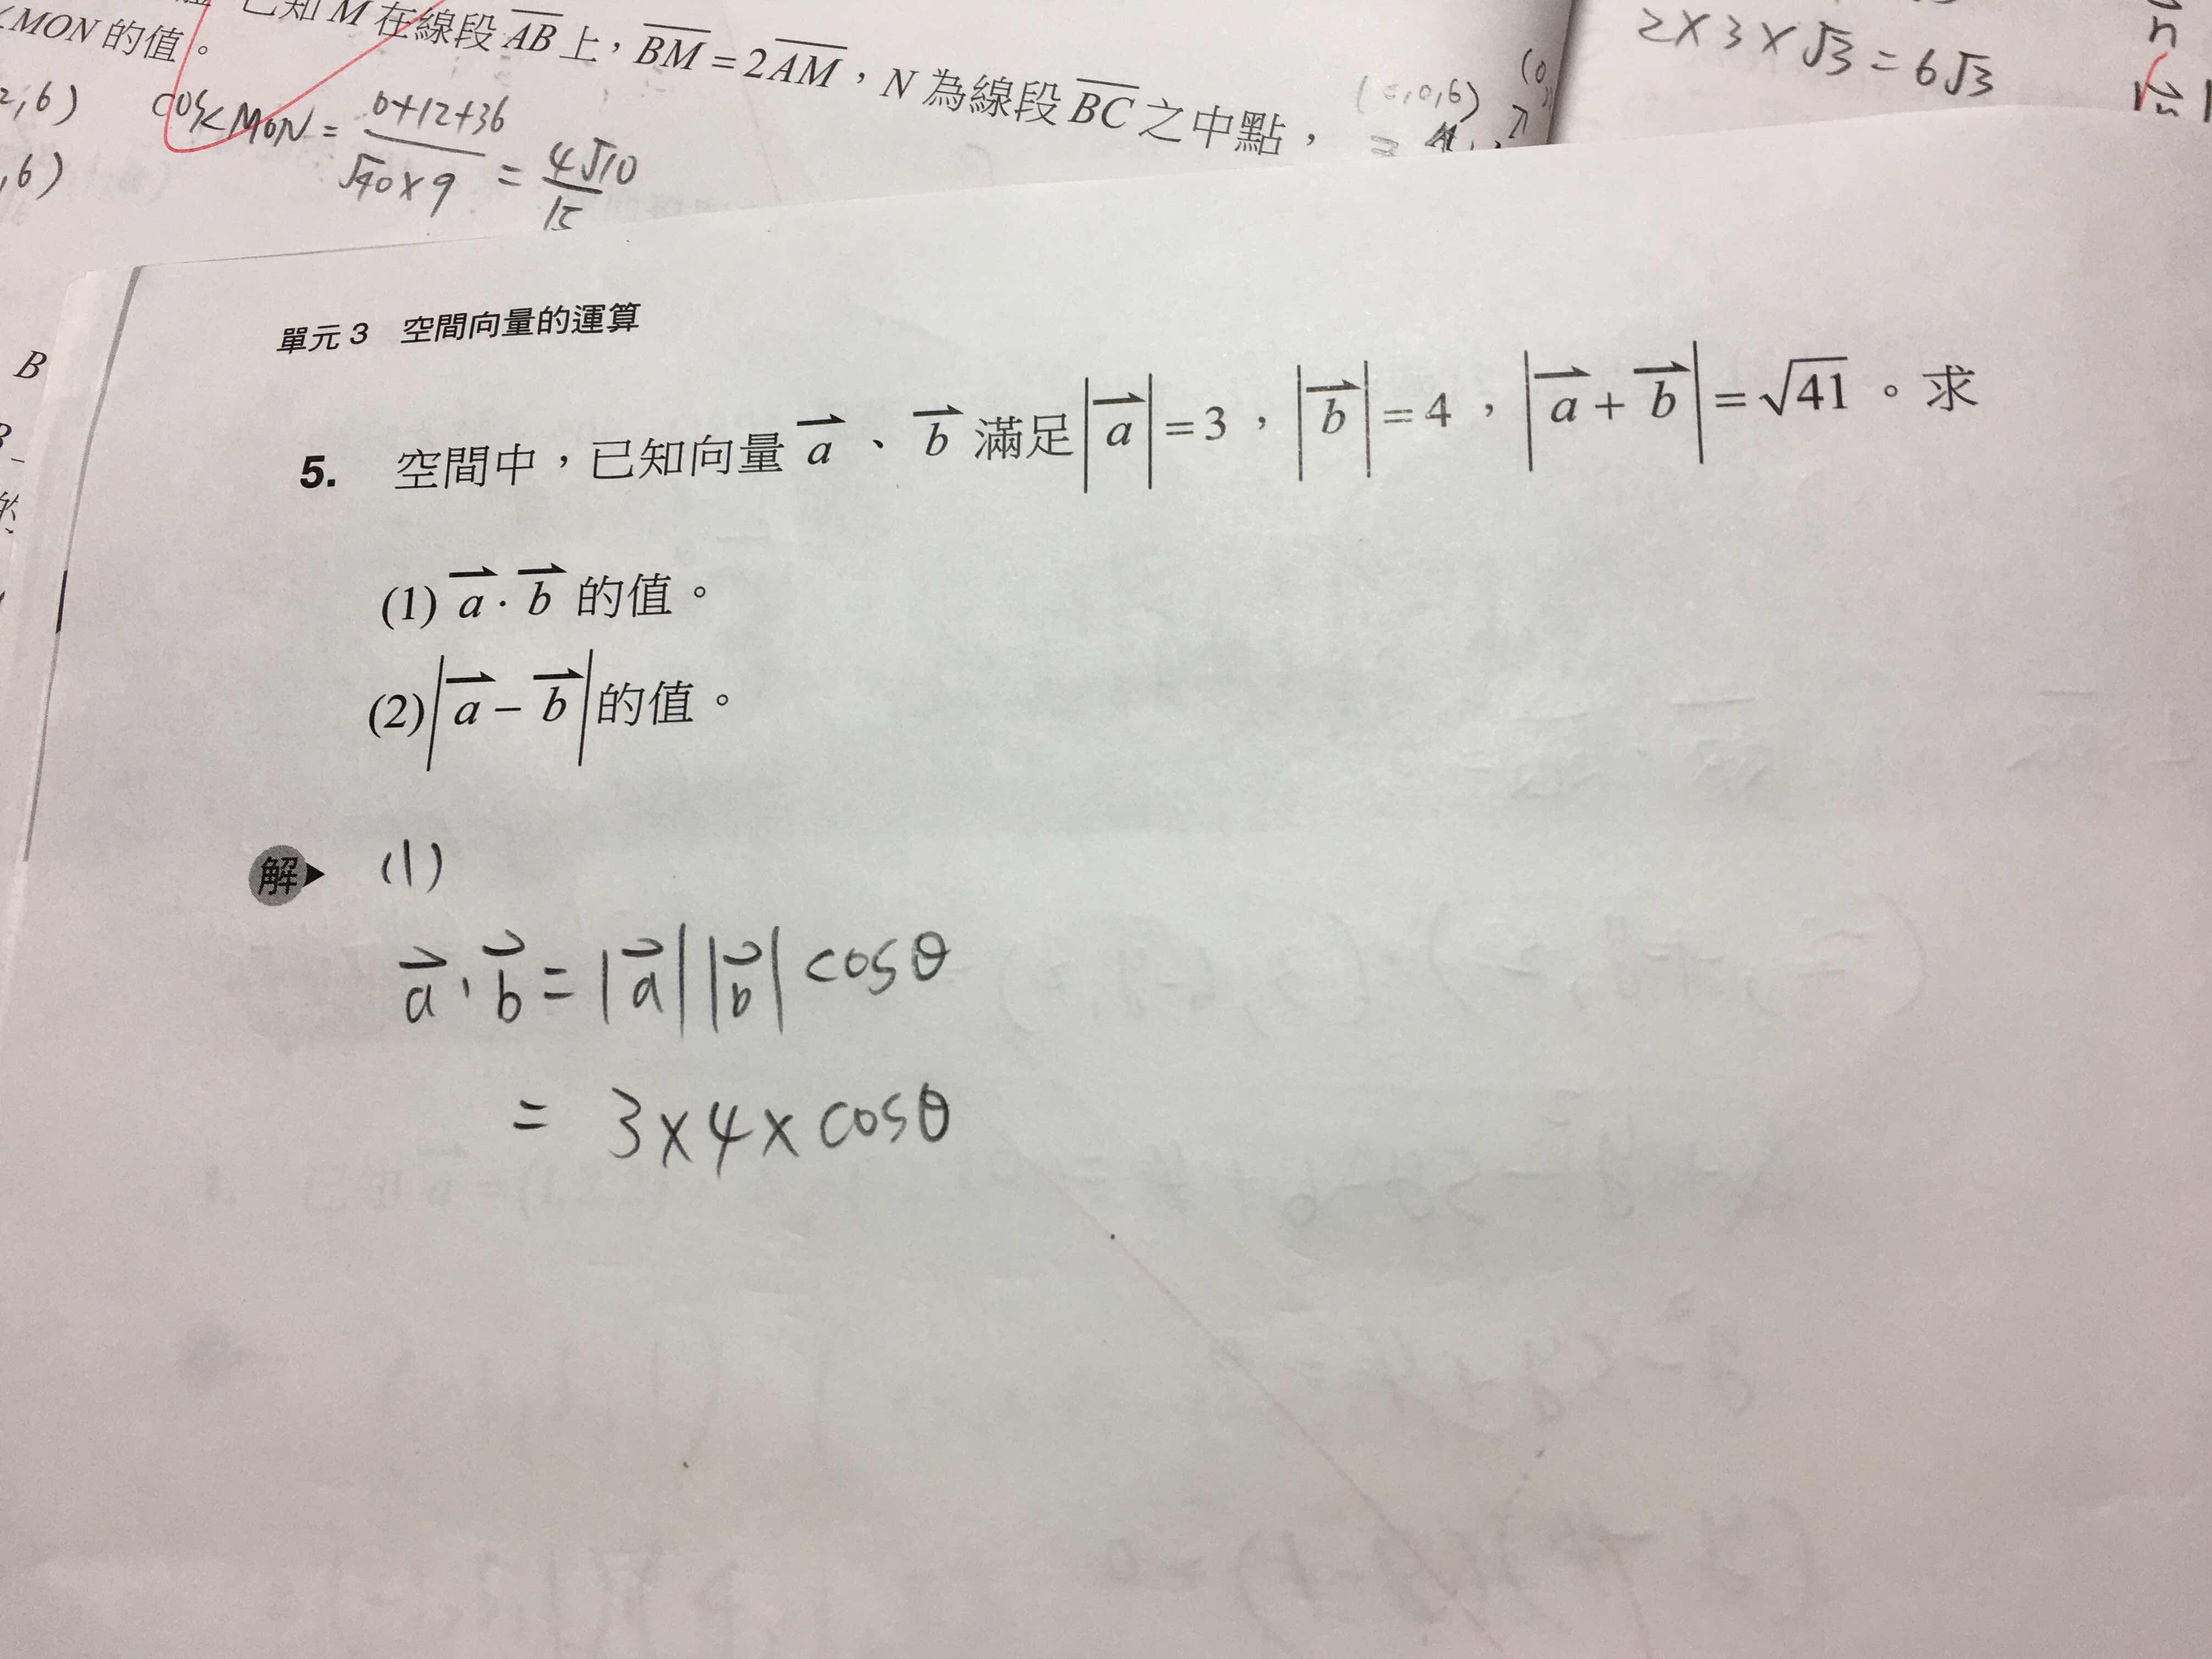 已知 M 在線段 AB 上，BM = 2AM，N 為線段 BC 之中點，
∠MON 的值。
cos∠MON = (0+12+36)/(√40×9) = 4√10/15
2×3×√3 = 6√3
,6)
,6)
B
單元 3　空間向量的運算
5. 空間中，已知向量 a⃗、b⃗ 滿足|a⃗|=3，|b⃗|=4，|a⃗+b⃗|=√41。求
(1) a⃗·b⃗ 的值。
(2)|a⃗−b⃗|的值。
解▶ (1)
a⃗·b⃗=|a⃗||b⃗|cosθ
= 3×4×cosθ